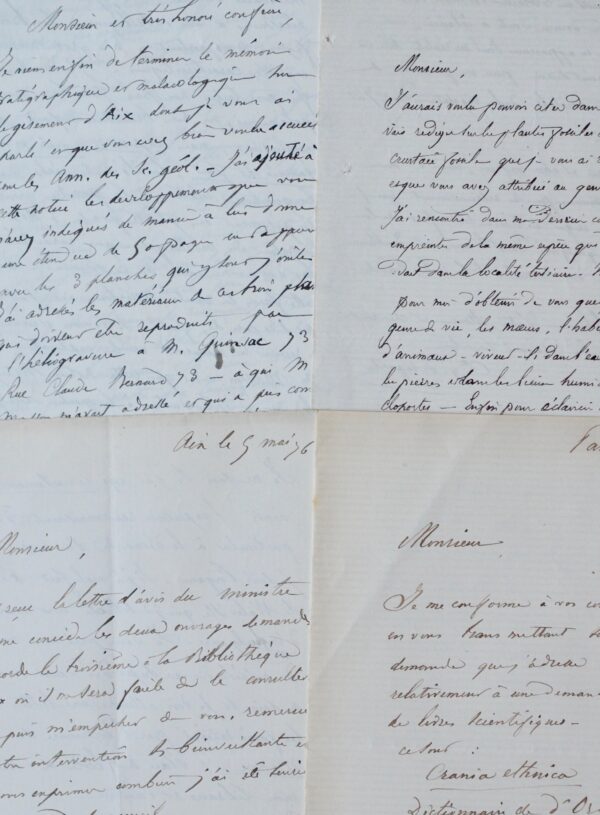 Monsieur et très honoré confrère,
Je viens enfin de terminer le mémoire
stratigraphique et malacologique sur
le gisement d'Aix dont je vous ai
parlé et que vous avez bien voulu
dans les Ann. des Sc. géol. – J'ai ajouté à
cette notice les développements que vous
m'avez indiqués de manière à lui donner
une étendue de 50 pages en rapport
avec les 3 planches qui y sont jointes
J'ai adressé les matériaux de ces trois
qui doivent être reproduits par
l'héliogravure à M. 73
Rue Claude Bernard 73 – à qui M
m'avait adressé et qui a pris
Monsieur,
J'aurais voulu pouvoir citer dans
rédiger sur les plantes fossiles
crustacé fossile que je vous ai
et que vous avez attribué au
J'ai rencontré dans
empreintes de la même espèce que
dans la localité tertiaire.
pour moi d'obtenir de vous que
genre de vie, les mœurs, l'hab
d'animaux – vivent-ils dans l'eau
les pierres et dans les lieux humi
cloportes – Enfin pour éclaircir
Aix le 5 mai 76
Monsieur,
la lettre d'avis du ministre
me concède les deux ouvrages demandés
le troisième à la Bibliothèque
où il me sera facile de le consulter
puis m'empêcher de vous remercier
intervention si bienveillante et
vous exprimer combien j'ai été
Monsieur
Je me conforme à vos
en vous transmettant
demande que j'adresse
relativement à une deman
de livres scientifiques –
ce sont :
Crania ethnica
Dictionnaire de d'Or